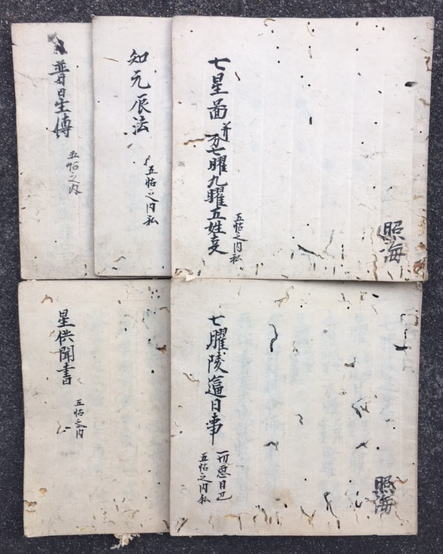 照海
七星啚并七曜九曜五姓支
五帖之内私
知元辰法
五帖之内私
星傳
五帖之内
照海
七曜陵逼日事
一切悪日
五帖之内私
星供聞書
五帖之内